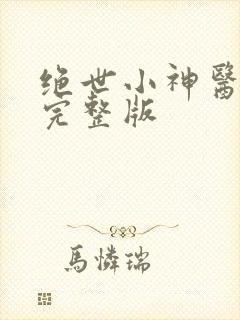 绝世小神醫
完整版
馬憐瑞